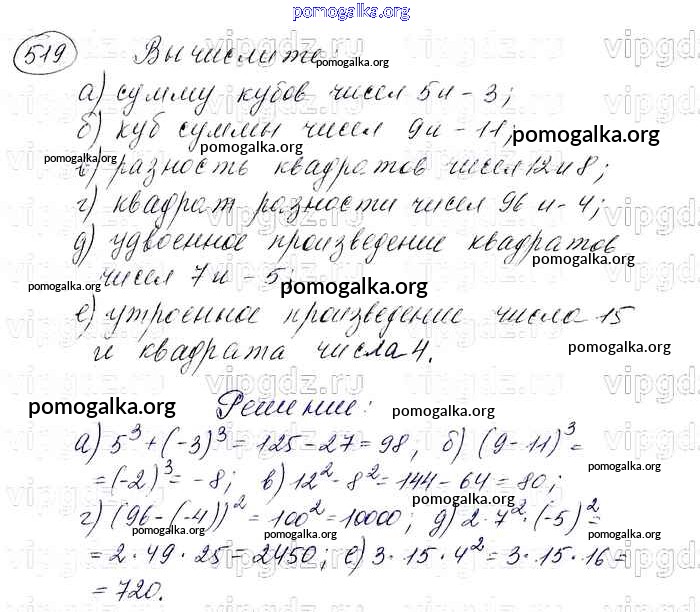 pomogalka.org
519 Вычислите:
pomogalka.org
а) сумму кубов чисел 5 и -3;
б) куб суммы чисел 9 и -11;
pomogalka.org
pomogalka.org
pomogalka.org
в) разность квадратов чисел 12 и 8;
г) квадрат разности чисел 96 и -4;
д) удвоенное произведение квадратов
pomogalka.org
чисел 7 и -5;
pomogalka.org
pomogalka.org
е) утроенное произведение числа 15
и квадрата числа 4.
pomogalka.org
Решение:
pomogalka.org
pomogalka.org
а) 5³ + (-3)³ = 125 - 27 = 98; б) (9 - 11)³ =
= (-2)³ = -8; в) 12² - 8² = 144 - 64 = 80;
pomogalka.org
pomogalka.org
г) (96 - (-4))² = 100² = 10000; д) 2 · 7² · (-5)² =
pomogalka.org
pomogalka.org
= 2 · 49 · 25 = 2450; е) 3 · 15 · 4² = 3 · 15 · 16 =
= 720.
pomogalka.org